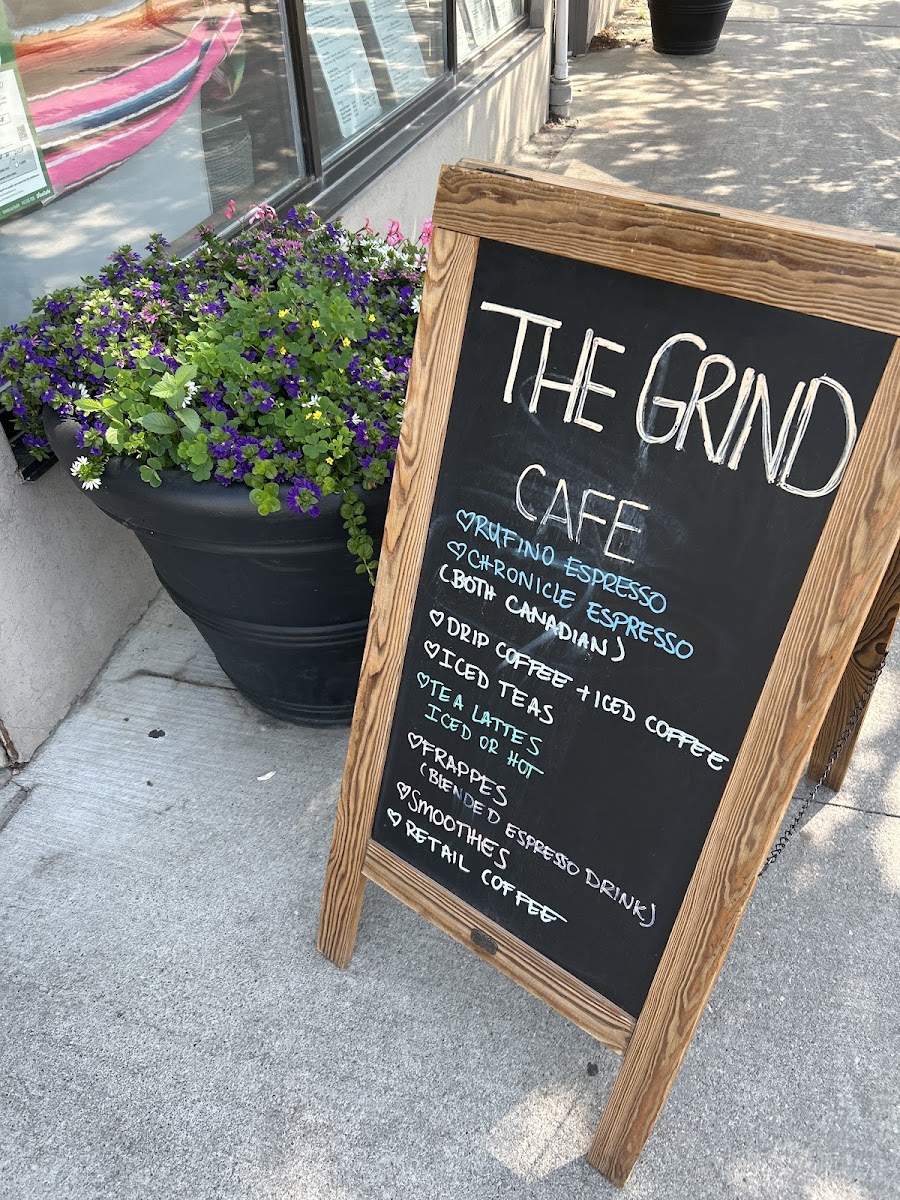 THE GRIND
CAFE
♡RUFINO ESPRESSO
♡CHRONICLE ESPRESSO
(BOTH CANADIAN)
♡DRIP COFFEE + ICED COFFEE
♡ICED TEAS
♡TEA LATTES
ICED OR HOT
♡FRAPPES
(BLENDED ESPRESSO DRINK)
♡SMOOTHIES
♡RETAIL COFFEE